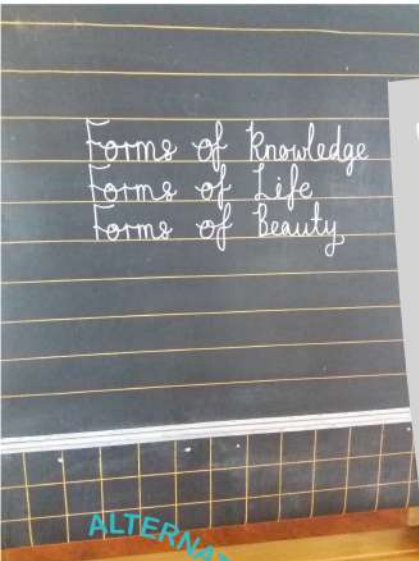 Forms of Knowledge
Forms of Life
Forms of Beauty